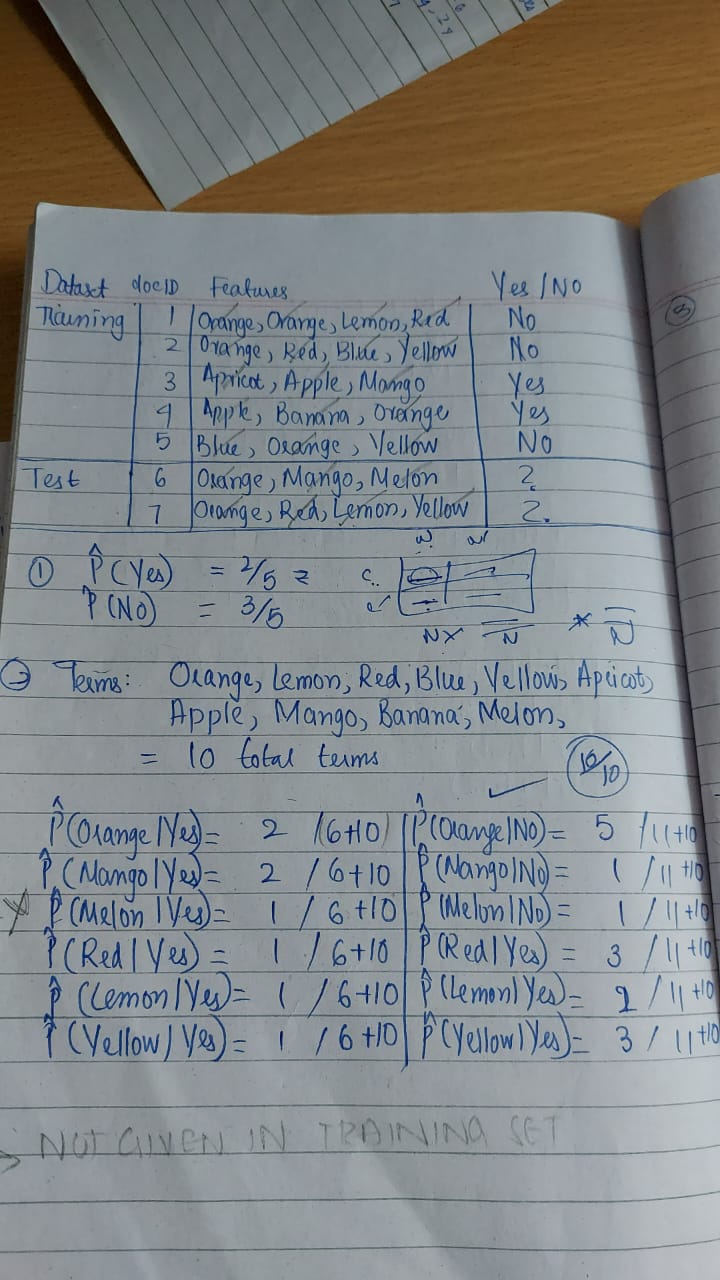 Dataset docID Features Yes/No
Training 1 Orange, Orange, Lemon, Red No
2 Orange, Red, Blue, Yellow No
3 Apricot, Apple, Mango Yes
4 Apple, Banana, Orange Yes
5 Blue, Orange, Yellow NO
Test 6 Orange, Mango, Melon ?
7 Orange, Red, Lemon, Yellow ?
① P̂(Yes) = 2/5
P̂(NO) = 3/5
② Terms: Orange, Lemon, Red, Blue, Yellow, Apricot,
Apple, Mango, Banana, Melon,
= 10 total terms
10/10
P̂(Orange|Yes) = 2 /(6+10) P̂(Orange|No) = 5 /11+10
P̂(Mango|Yes) = 2 /6+10 P̂(Mango|No) = 1 /11+10
P̂(Melon|Yes) = 1 /6+10 P̂(Melon|No) = 1 /11+10
P̂(Red|Yes) = 1 /6+10 P̂(Red|Yes) = 3 /11+10
P̂(Lemon|Yes) = 1 /6+10 P̂(Lemon|Yes) = 2 /11+10
P̂(Yellow|Yes) = 1 /6+10 P̂(Yellow|Yes) = 3 /11+10
NOT GIVEN IN TRAINING SET